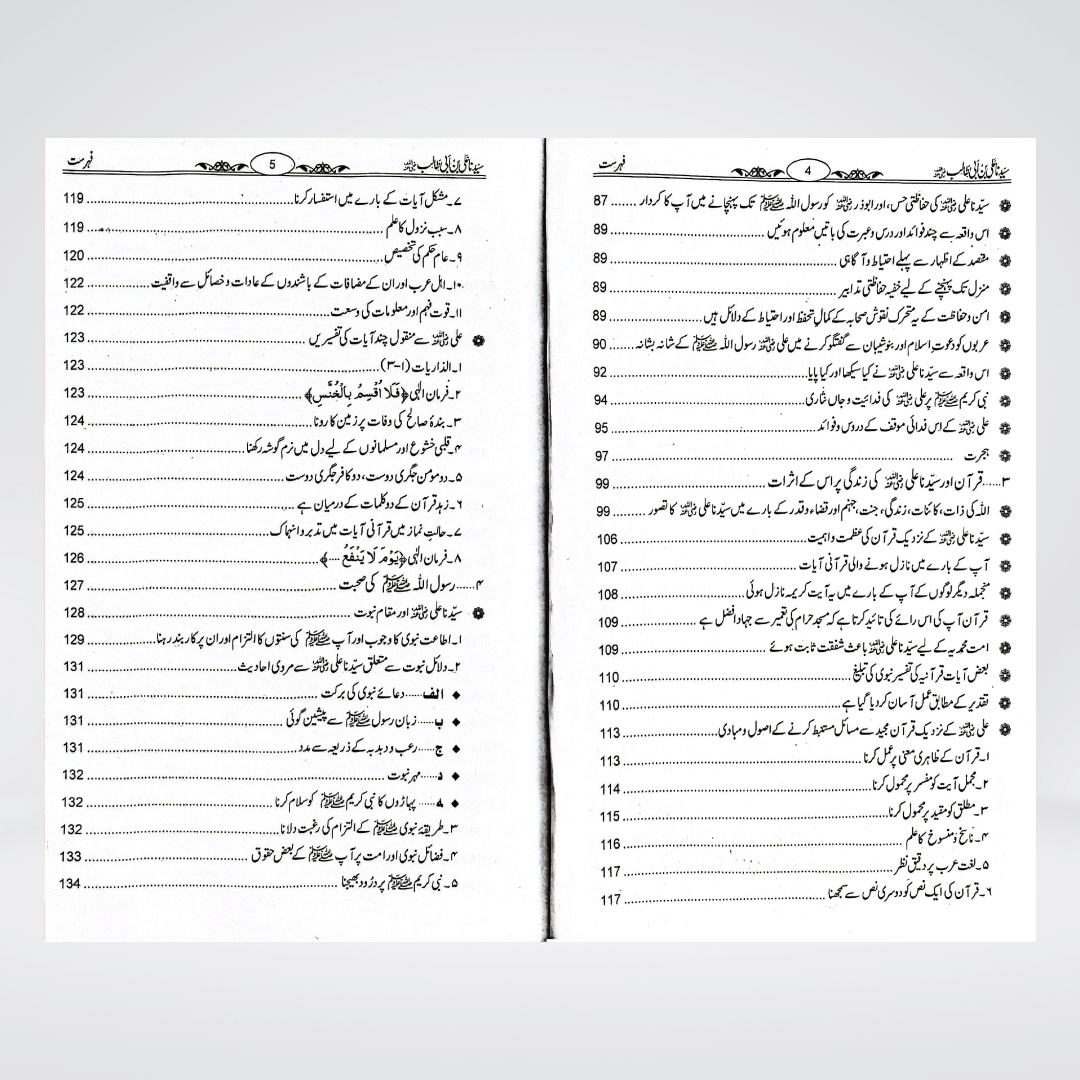 سیّدنا علی بن ابی طالب رضی اللہ عنہ 4 فہرست
❁ سیّدنا علی رضی اللہ عنہ کی حفاظتی حس، اور ابوذر رضی اللہ عنہ کو رسول اللہ ﷺ تک پہنچانے میں آپ کا کردار ....... 87
❁ اس واقعہ سے چند فوائد اور درس و عبرت کی باتیں معلوم ہوئیں ....... 89
❁ مقصد کے اظہار سے پہلے احتیاط و آگاہی ....... 89
❁ منزل تک پہنچنے کے لیے خفیہ حفاظتی تدابیر ....... 89
❁ امن و حفاظت کے یہ متحرک نقوش صحابہ کے کمالِ تحفظ اور احتیاط کے دلائل ہیں ....... 89
❁ عربوں کو دعوتِ اسلام اور بنو شیبان سے گفتگو کرنے میں علی رضی اللہ عنہ رسول اللہ ﷺ کے شانہ بشانہ ....... 90
❁ اس واقعہ سے سیّدنا علی رضی اللہ عنہ نے کیا سیکھا اور کیا پایا ....... 92
❁ نبی کریم ﷺ پر علی رضی اللہ عنہ کی فدائیت و جاں نثاری ....... 94
❁ علی رضی اللہ عنہ کے اس فدائی موقف کے دروس و فوائد ....... 95
❁ ہجرت ....... 97
۳.....قرآن اور سیّدنا علی رضی اللہ عنہ کی زندگی پر اس کے اثرات ....... 99
❁ اللہ کی ذات، کائنات، زندگی، جنت، جہنم اور قضاء و قدر کے بارے میں سیّدنا علی رضی اللہ عنہ کا تصور ....... 99
❁ سیّدنا علی رضی اللہ عنہ کے نزدیک قرآن کی عظمت و اہمیت ....... 106
❁ آپ کے بارے میں نازل ہونے والی قرآنی آیات ....... 107
❁ منجملہ دیگر لوگوں کے آپ کے بارے میں یہ آیت کریمہ نازل ہوئی ....... 108
❁ قرآن آپ کی اس رائے کی تائید کرتا ہے کہ مسجد حرام کی تعمیر سے جہاد افضل ہے ....... 109
❁ امت محمدیہ کے لیے سیّدنا علی رضی اللہ عنہ باعث شفقت ثابت ہوئے ....... 109
❁ بعض آیات قرآنیہ کی تفسیر نبوی کی تبلیغ ....... 110
❁ تقدیر کے مطابق عمل آسان کر دیا گیا ہے ....... 110
❁ علی رضی اللہ عنہ کے نزدیک قرآن مجید سے مسائل مستنبط کرنے کے اصول و مبادی ....... 113
۱۔ قرآن کے ظاہری معنی پر عمل کرنا ....... 113
۲۔ مجمل آیت کو مفسر پر محمول کرنا ....... 114
۳۔ مطلق کو مقید پر محمول کرنا ....... 115
۴۔ ناسخ و منسوخ کا علم ....... 116
۵۔ لغت عرب پر دقیق نظر ....... 117
۶۔ قرآن کی ایک نص کو دوسری نص سے سمجھنا ....... 117
سیّدنا علی بن ابی طالب رضی اللہ عنہ 5 فہرست
۷۔ مشکل آیات کے بارے میں استفسار کرنا ....... 119
۸۔ سبب نزول کا علم ....... 119
۹۔ عام حکم کی تخصیص ....... 120
۱۰۔ اہل عرب اور ان کے مضافات کے باشندوں کے عادات و خصائل سے واقفیت ....... 122
۱۱۔ قوت فہم اور معلومات کی وسعت ....... 122
❁ علی رضی اللہ عنہ سے منقول چند آیات کی تفسیریں ....... 123
۱۔ الذاریات (۱-۳) ....... 123
۲۔ فرمان الٰہی ﴿فَلَا أُقْسِمُ بِالْخُنَّسِ﴾ ....... 123
۳۔ بندۂ صالح کی وفات پر زمین کا رونا ....... 124
۴۔ قلبی خشوع اور مسلمانوں کے لیے دل میں نرم گوشہ رکھنا ....... 124
۵۔ دو مومن جگری دوست، دو کافر جگری دوست ....... 124
۶۔ زہد قرآن کے دو کلمات کے درمیان ہے ....... 125
۷۔ حالتِ نماز میں قرآنی آیات میں تدبر و انہماک ....... 125
۸۔ فرمان الٰہی ﴿يَوْمَ لَا يَنْفَعُ ....﴾ ....... 126
۴.....رسول اللہ ﷺ کی صحبت ....... 127
❁ سیّدنا علی رضی اللہ عنہ اور مقام نبوت ....... 128
۱۔ اطاعت نبوی کا وجوب اور آپ ﷺ کی سنتوں کا التزام اور ان پر کاربند رہنا ....... 129
۲۔ دلائل نبوت سے متعلق سیّدنا علی رضی اللہ عنہ سے مروی احادیث ....... 131
◆ الف.....دعائے نبوی کی برکت ....... 131
◆ ب.....زبان رسول ﷺ سے پیشین گوئی ....... 131
◆ ج.....رعب و دبدبہ کے ذریعہ سے مدد ....... 131
◆ د.....مہر نبوت ....... 132
◆ ہ.....پہاڑوں کا نبی کریم ﷺ کو سلام کرنا ....... 132
۳۔ طریقۂ نبوی ﷺ کے التزام کی رغبت دلانا ....... 132
۴۔ فضائل نبوی اور امت پر آپ ﷺ کے بعض حقوق ....... 133
۵۔ نبی کریم ﷺ پر درُود بھیجنا ....... 134